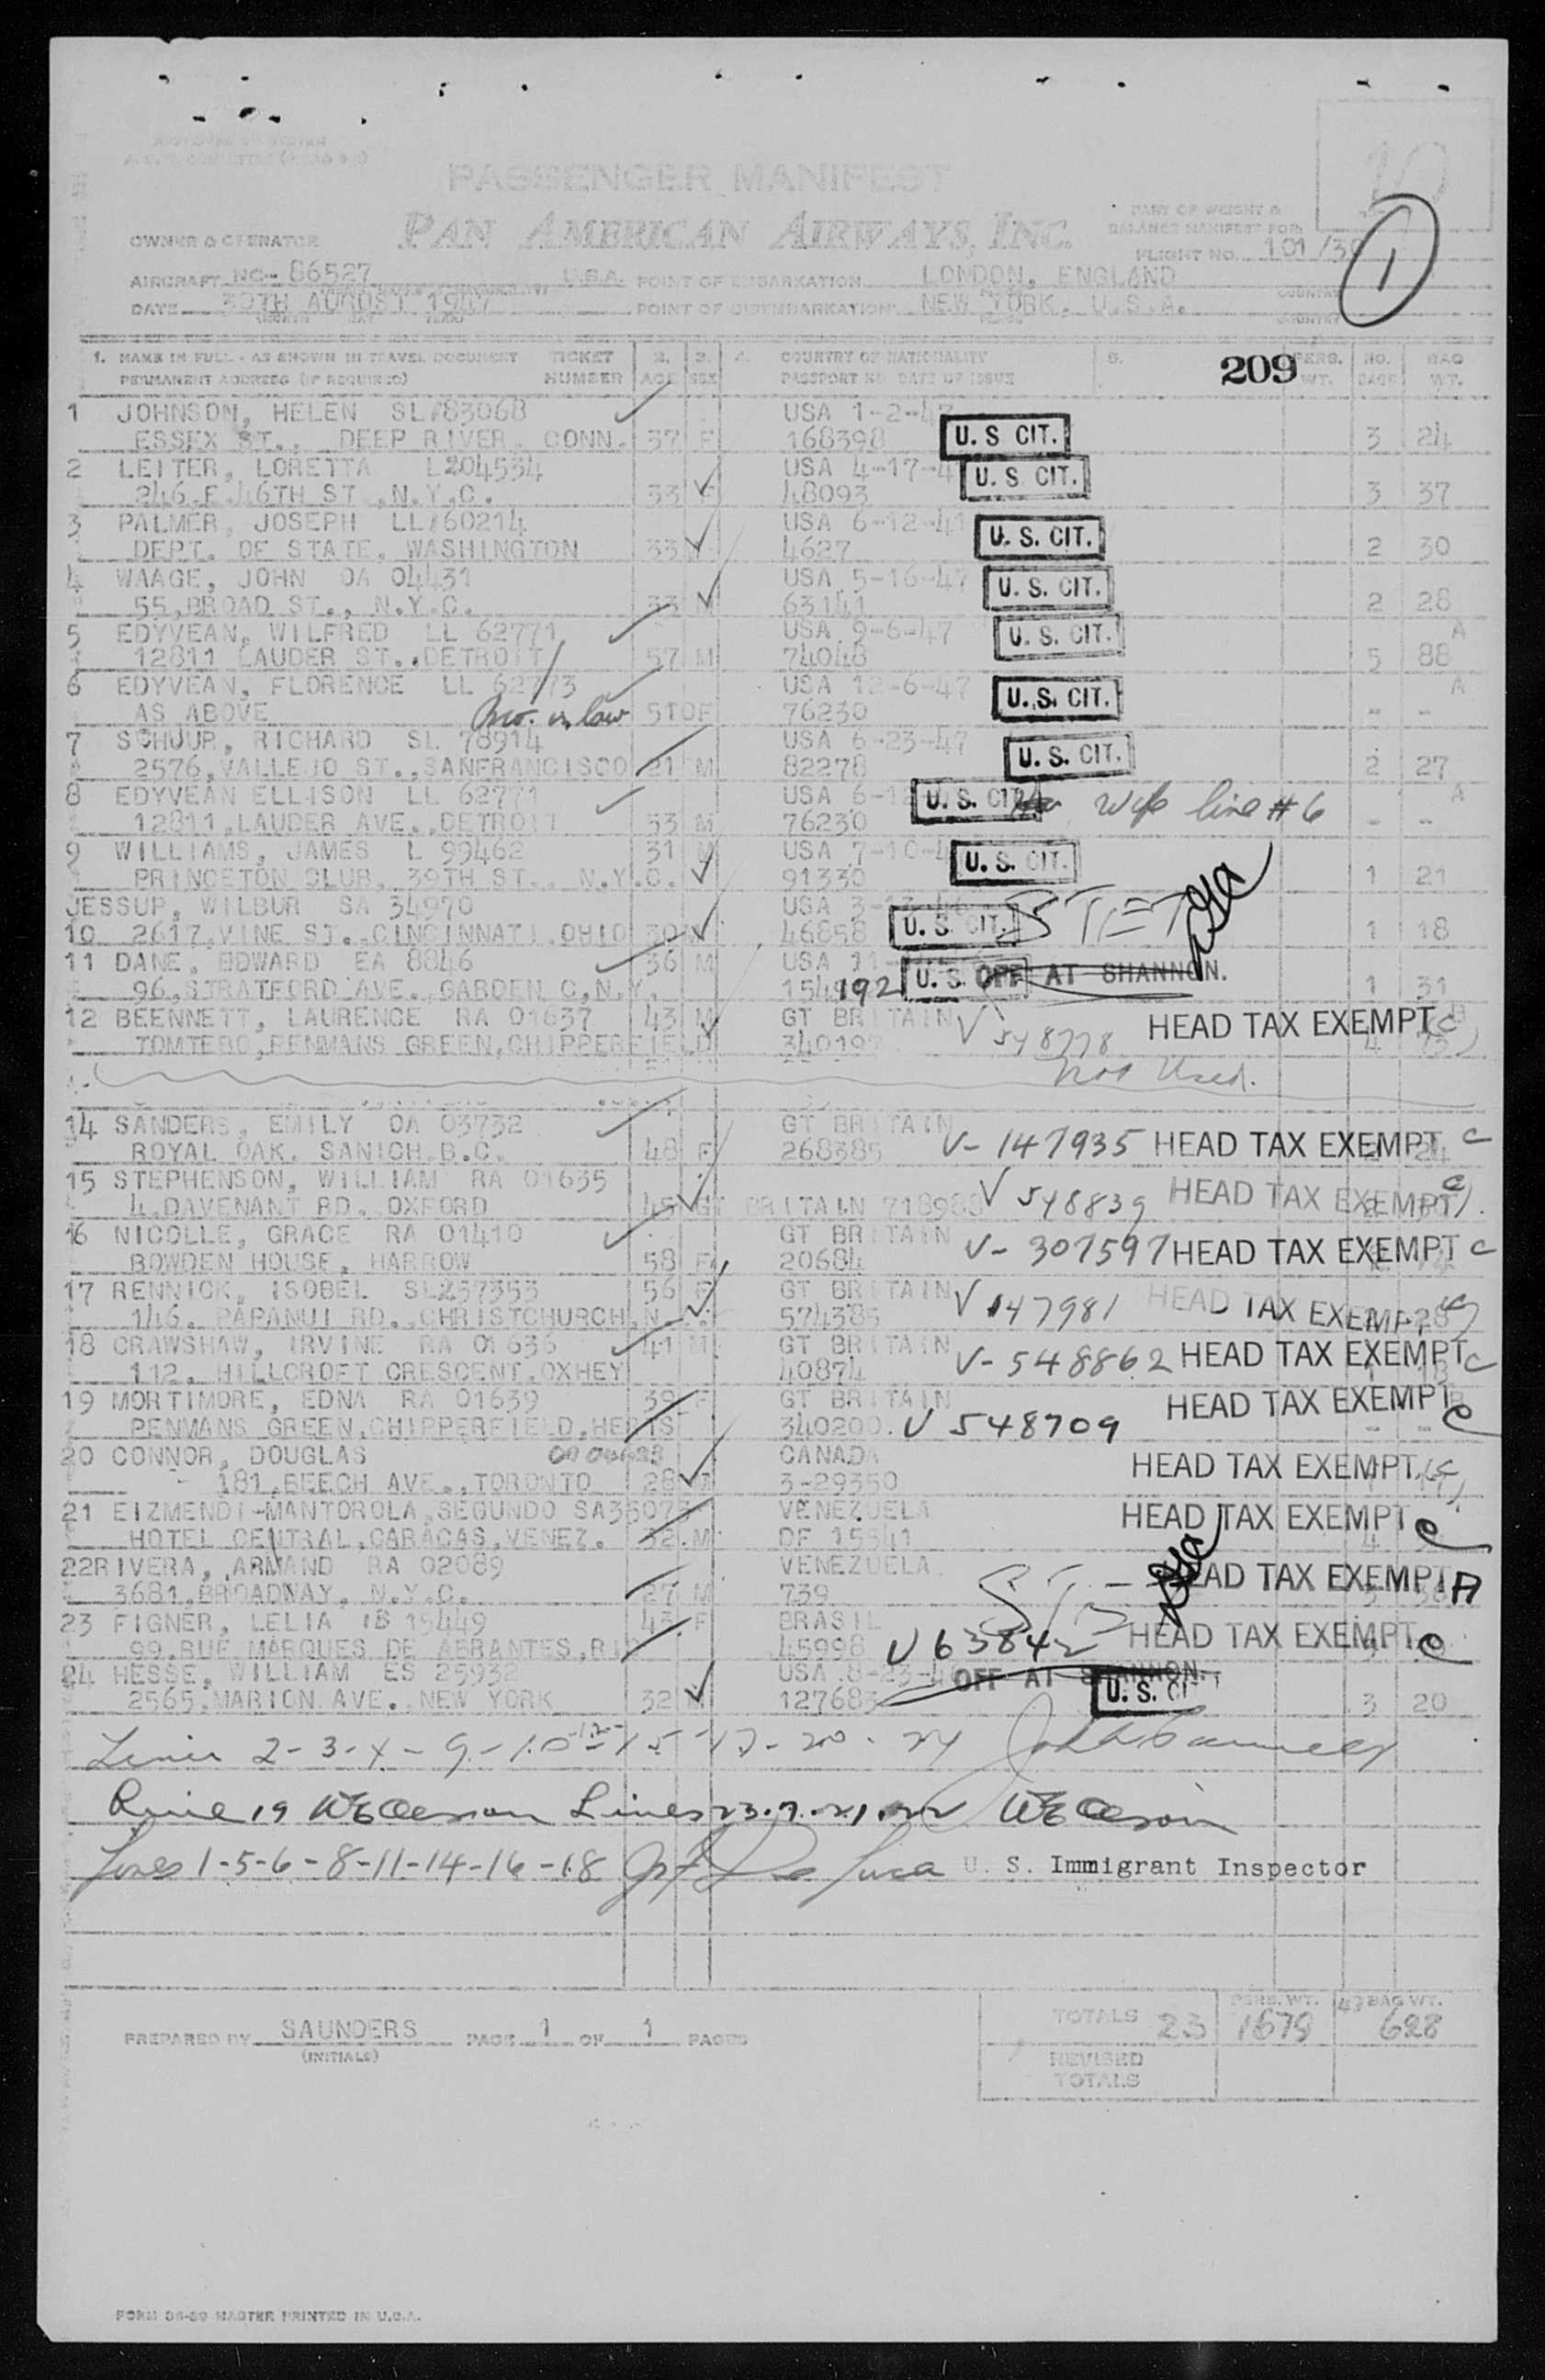 10
PASSENGER MANIFEST
PAN AMERICAN AIRWAYS, INC.
PART OF WEIGHT &
BALANCE MANIFEST FOR:
OWNER & OPERATOR
FLIGHT NO. 101/30
1
AIRCRAFT NC- 86527 U.S.A. POINT OF EMBARKATION LONDON, ENGLAND COUNTRY
DATE 30TH AUGUST 1947 POINT OF DISEMBARKATION NEW YORK, U.S.A. COUNTRY
1. NAME IN FULL - AS SHOWN IN TRAVEL DOCUMENT TICKET 2. 3. 4. COUNTRY OF NATIONALITY 5. 209 PERS. NO. BAG
PERMANENT ADDRESS (IF REQUIRED) NUMBER AGE SEX PASSPORT NO DATE OF ISSUE WT. BAGS WT.
1 JOHNSON, HELEN SL 83068 USA 1-2-47
ESSEX ST., DEEP RIVER, CONN. 37 F 168398 U. S CIT. 3 24
2 LEITER, LORETTA L204534 USA 4-17-4 U. S. CIT.
246.E.46TH ST.,N.Y.C. 33 48093 3 37
3 PALMER, JOSEPH LL 60214 USA 6-12-41 U. S. CIT.
DEPT. OF STATE, WASHINGTON 33 4627 2 30
4 WAAGE, JOHN OA 04431 USA 5-16-47 U. S. CIT.
55,BROAD ST., N.Y.C. 33 M 63141 2 28
5 EDYVEAN, WILFRED LL 62771 USA 9-6-47 U. S. CIT. A
12811 LAUDER ST.,DETROIT 57 M 74048 5 88
6 EDYVEAN, FLORENCE LL 62773 USA 12-6-47 U. S. CIT. A
AS ABOVE in law 76230 - -
7 SCHOUP, RICHARD SL 78914 USA 6-23-47 U. S. CIT.
2576,VALLEJO ST.,SANFRANCISCO 21 M 82278 2 27
8 EDYVEAN ELLISON LL 62771 USA 6-12 U. S. CIT. Wife line #6 A
12811,LAUDER AVE.,DETROIT 33 M 76230 - -
9 WILLIAMS, JAMES L 99462 31 M USA 7-10-4 U. S. CIT.
PRINCETON CLUB, 39TH ST., N.Y.C. 91330 1 21
JESSUP, WILBUR SA 34970 USA 3-
10 2617,VINE ST.,CINCINNATI,OHIO 30 46858 U. S. CIT. STET 1 18
11 DANE, EDWARD EA 8846 36 M USA 11 U. S. OFF AT SHANNON.
96,STRATFORD AVE.,GARDEN C,N.Y. 192 1 31
12 BEENNETT, LAURENCE RA 01637 43 M GT BRITAIN V 548778 HEAD TAX EXEMPT C
TOMTEBO,PENMANS GREEN,CHIPPERFIELD 340197 4
Not Used.
14 SANDERS, EMILY OA 03732 GT BRITAIN
ROYAL OAK, SANICH.B.C. 48 F 268385 V- 147935 HEAD TAX EXEMPT C
15 STEPHENSON, WILLIAM RA 01635
4,DAVENANT RD. OXFORD 45 GT BRITAIN 71898 V 548839 HEAD TAX EXEMPT C
16 NICOLLE, GRACE RA 01410 GT BRITAIN
BOWDEN HOUSE, HARROW 58 F 20684 V- 307597 HEAD TAX EXEMPT C
17 RENNICK, ISOBEL SL257353 56 F GT BRITAIN
146, PAPANUI RD.,CHRISTCHURCH,N. 574385 V 147981 HEAD TAX EXEMPT
18 CRAWSHAW, IRVINE RA 01636 41 M GT BRITAIN
112, HILLCROFT CRESCENT,OXHEY 40874 V- 548862 HEAD TAX EXEMPT C
19 MORTIMORE, EDNA RA 01639 39 F GT BRITAIN HEAD TAX EXEMPT C
PENMANS GREEN,CHIPPERFIELD,HERTS 340200. V 548709 - -
20 CONNOR, DOUGLAS CANADA HEAD TAX EXEMPT
181,BEECH AVE.,TORONTO 28 3-29350
21 EIZMENDI-MANTOROLA,SEGUNDO SA35073 VENEZUELA HEAD TAX EXEMPT C
HOTEL CENTRAL,CARACAS,VENEZ. 32 M DF 15541 4
22RIVERA, ARMAND RA 02089 VENEZUELA HEAD TAX EXEMPT A
3681,BROADWAY, N.Y.C. 27 M 739
23 FIGNER, LELIA IB 15449 43 F BRASIL
99,RUE MARQUES DE ABRANTES,RIO 45998 V 63842 HEAD TAX EXEMPT C
24 HESSE, WILLIAM ES 25932 USA 8-23-4 OFF AT SHANNON.
2565,MARION AVE., NEW YORK 32 127683 U. S. CIT 3 20
Lines 2-3-4-9-10-12-15-17-20-24
Line 19 Lines 23.7.21.22
Lines 1-5-6-8-11-14-16-18 U. S. Immigrant Inspector
PREPARED BY SAUNDERS PAGE 1 OF 1 PAGES
(INITIALS)
PERS. WT. 43 BAG WT.
TOTALS 23 1679 628
REVISED
TOTALS
FORM 36-80 MASTER PRINTED IN U.S.A.